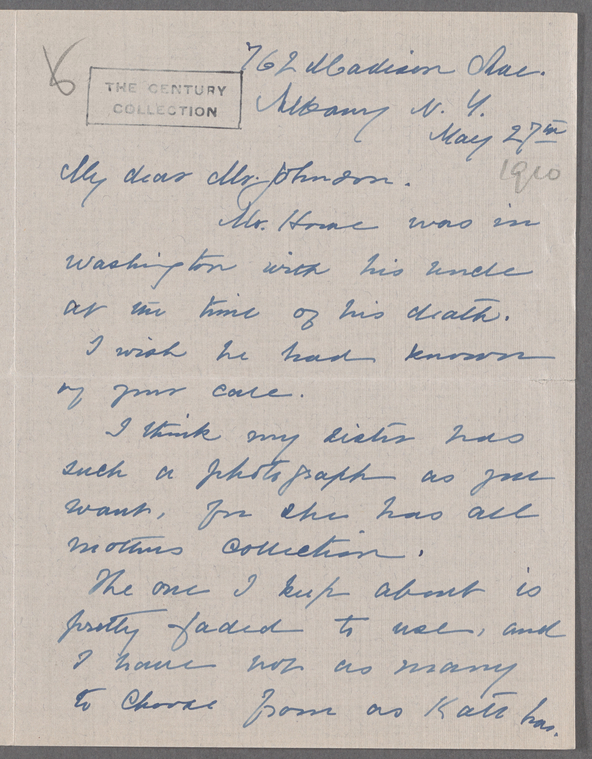 762 Madison Ave.
THE CENTURY
COLLECTION
Albany N. Y.
May 27th
1910
My dear Mr. Johnson.
Mr. Howe was in
Washington with his uncle
at the time of his death.
I wish he had known
of your call.
I think my sister has
such a photograph as you
want, for she has all
mothers collection.
The one I keep about is
pretty faded to use, and
I have not as many
to choose from as Kate has.